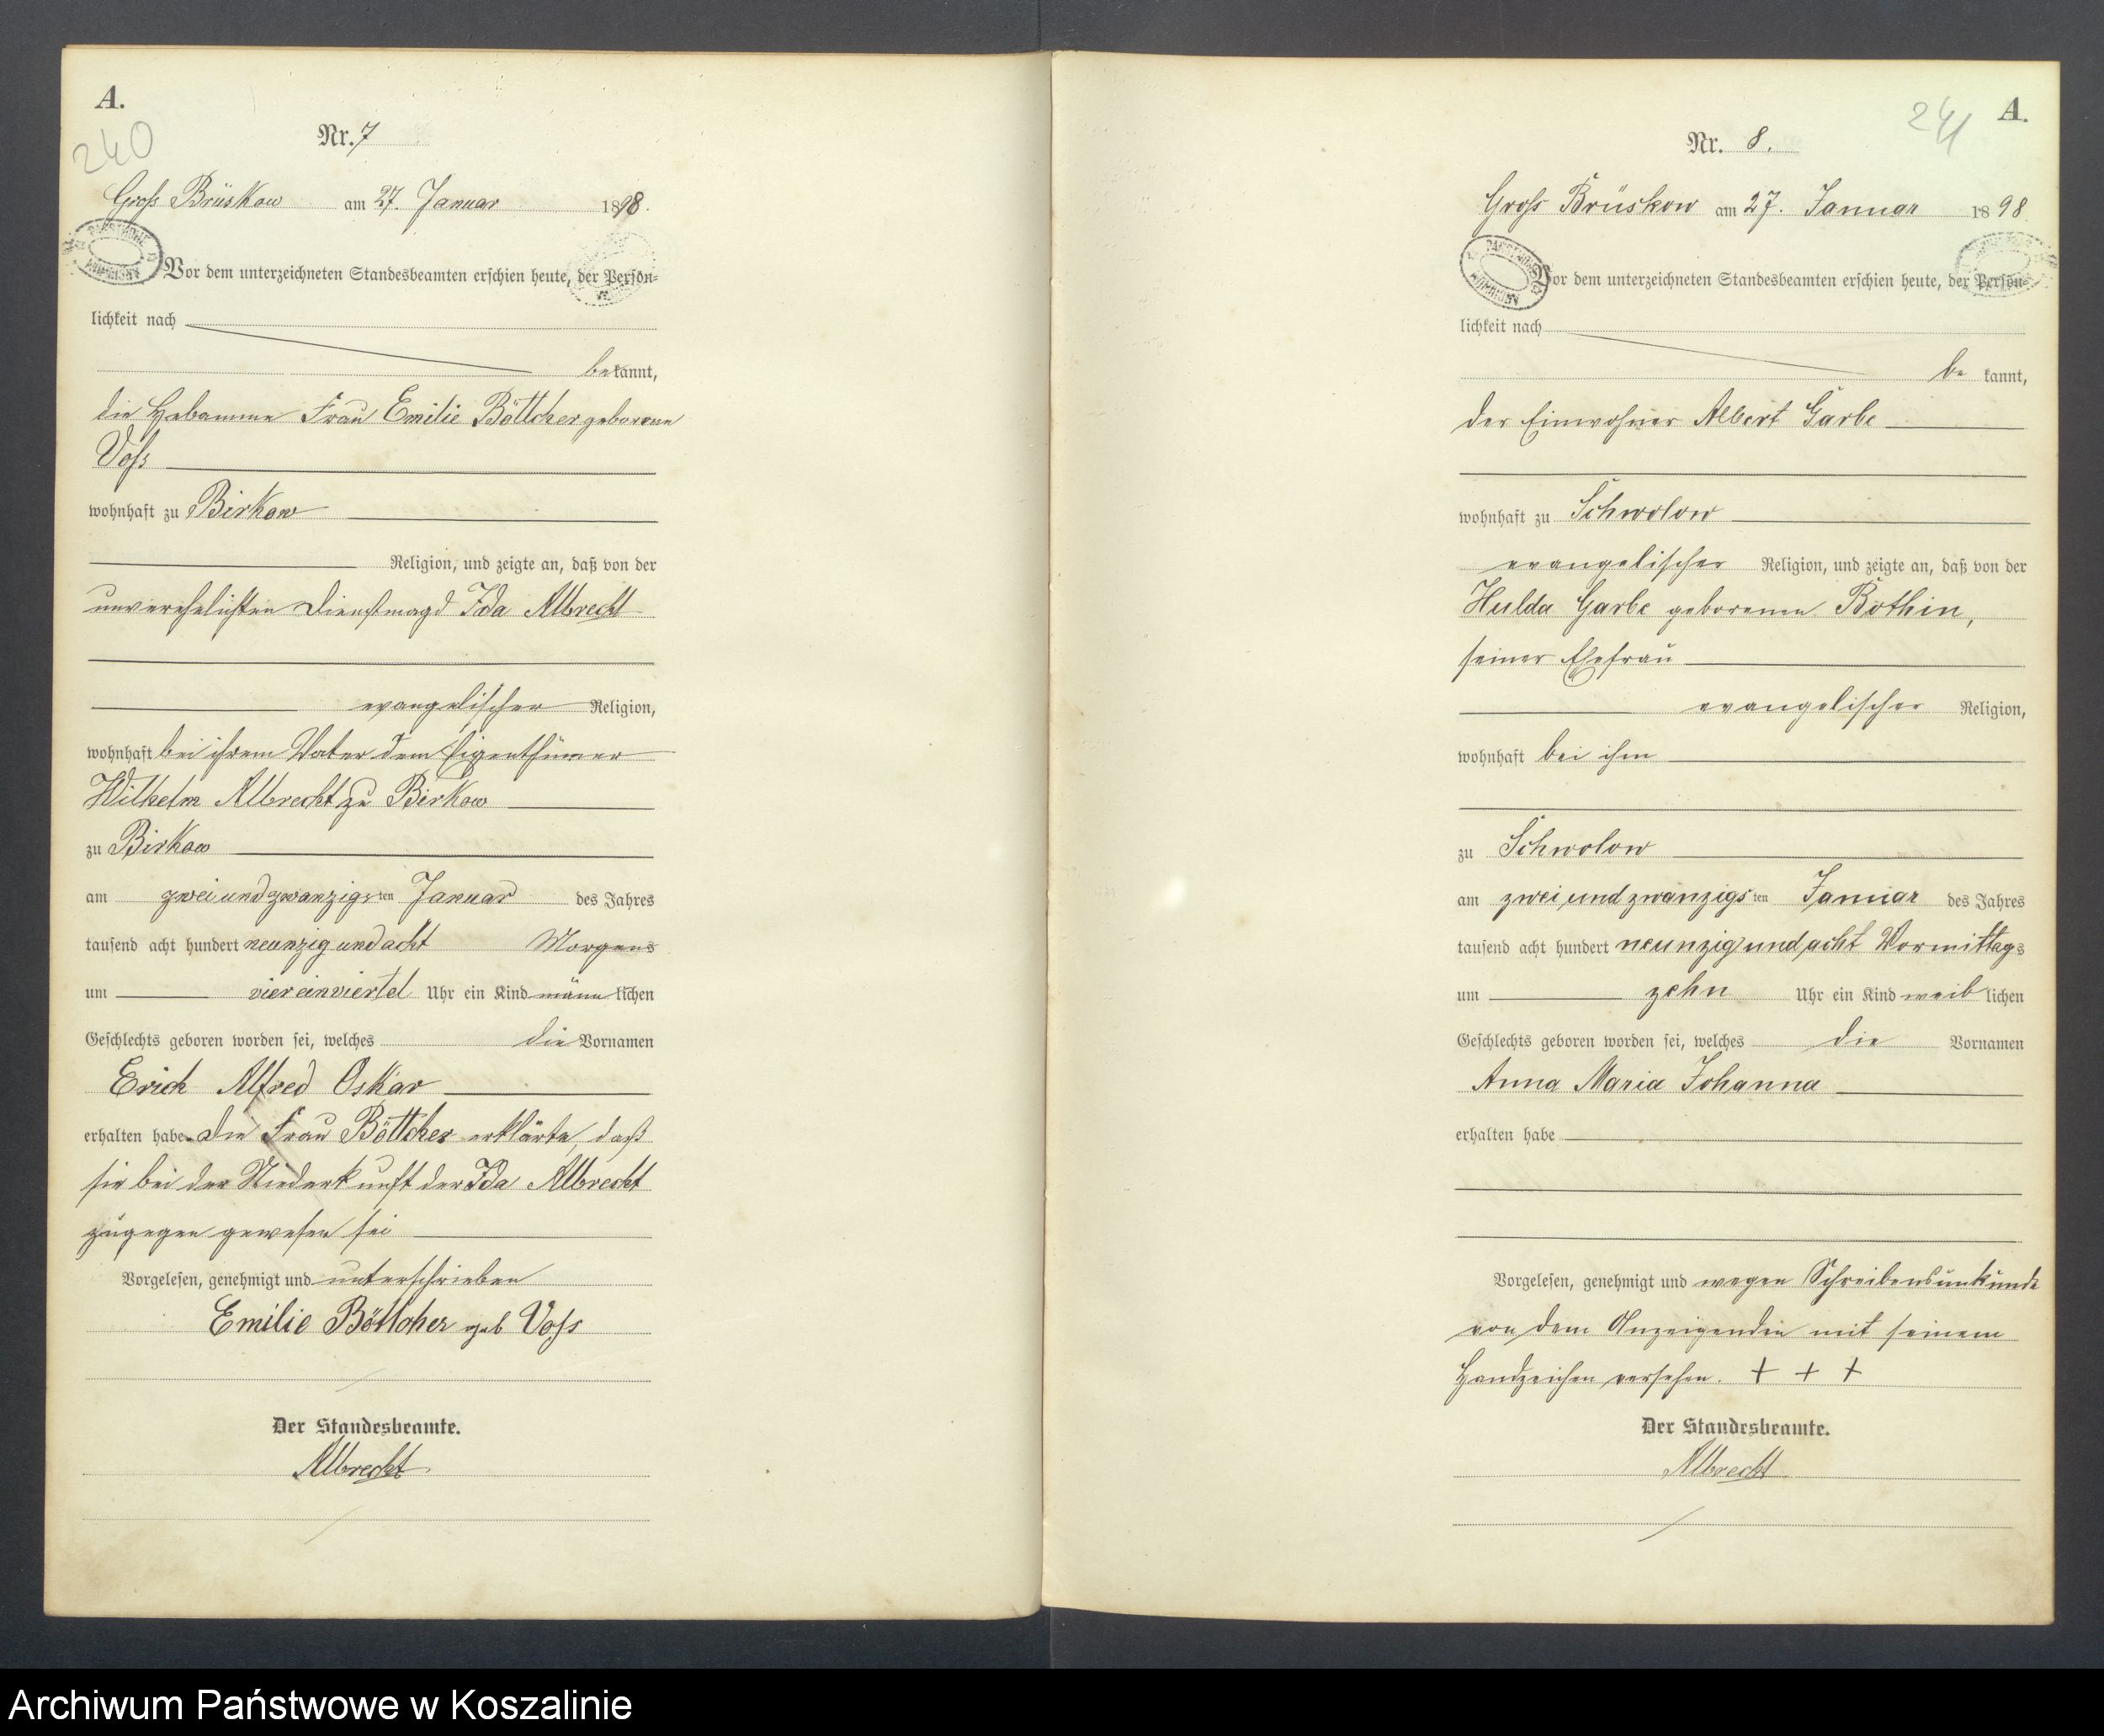 A.
240
Nr. 7
Gross Brüskow am 27. Januar 1898.
Vor dem unterzeichneten Standesbeamten erschien heute, der Persön-
lichkeit nach
bekannt,
die Hebamme Frau Emilie Böttcher geborene
Voss
wohnhaft zu Birkow
Religion, und zeigte an, daß von der
unverehelichten Dienstmagd Ida Albrecht
evangelischer Religion,
wohnhaft bei ihrem Vater dem Eigenthümer
Wilhelm Albrecht zu Birkow
zu Birkow
am zwei und zwanzigsten Januar des Jahres
tausend acht hundert neunzig und acht Morgens
um vier einviertel Uhr ein Kind männlichen
Geschlechts geboren worden sei, welches die Vornamen
Erich Alfred Oskar
erhalten habe. Die Frau Böttcher erklärte, daß
sie bei der Niederkunft der Ida Albrecht
zugegen gewesen sei
Vorgelesen, genehmigt und unterschrieben
Emilie Böttcher geb Voss
Der Standesbeamte.
Albrecht.
241
A.
Nr. 8.
Gross Brüskow am 27. Januar 1898
Vor dem unterzeichneten Standesbeamten erschien heute, der Persön-
lichkeit nach
be kannt,
der Einwohner Albert Garbe
wohnhaft zu Schwolow
evangelischer Religion, und zeigte an, daß von der
Hulda Garbe geborenen Bothin,
seiner Ehefrau
evangelischer Religion,
wohnhaft bei ihm
zu Schwolow
am zwei und zwanzigsten Januar des Jahres
tausend acht hundert neunzig und acht Vormittags
um zehn Uhr ein Kind weiblichen
Geschlechts geboren worden sei, welches die Vornamen
Anna Maria Johanna
erhalten habe
Vorgelesen, genehmigt und wegen Schreibensunkunde
von dem Anzeigenden mit seinem
Handzeichen versehen. + + +
Der Standesbeamte.
Albrecht
Archiwum Państwowe w Koszalinie